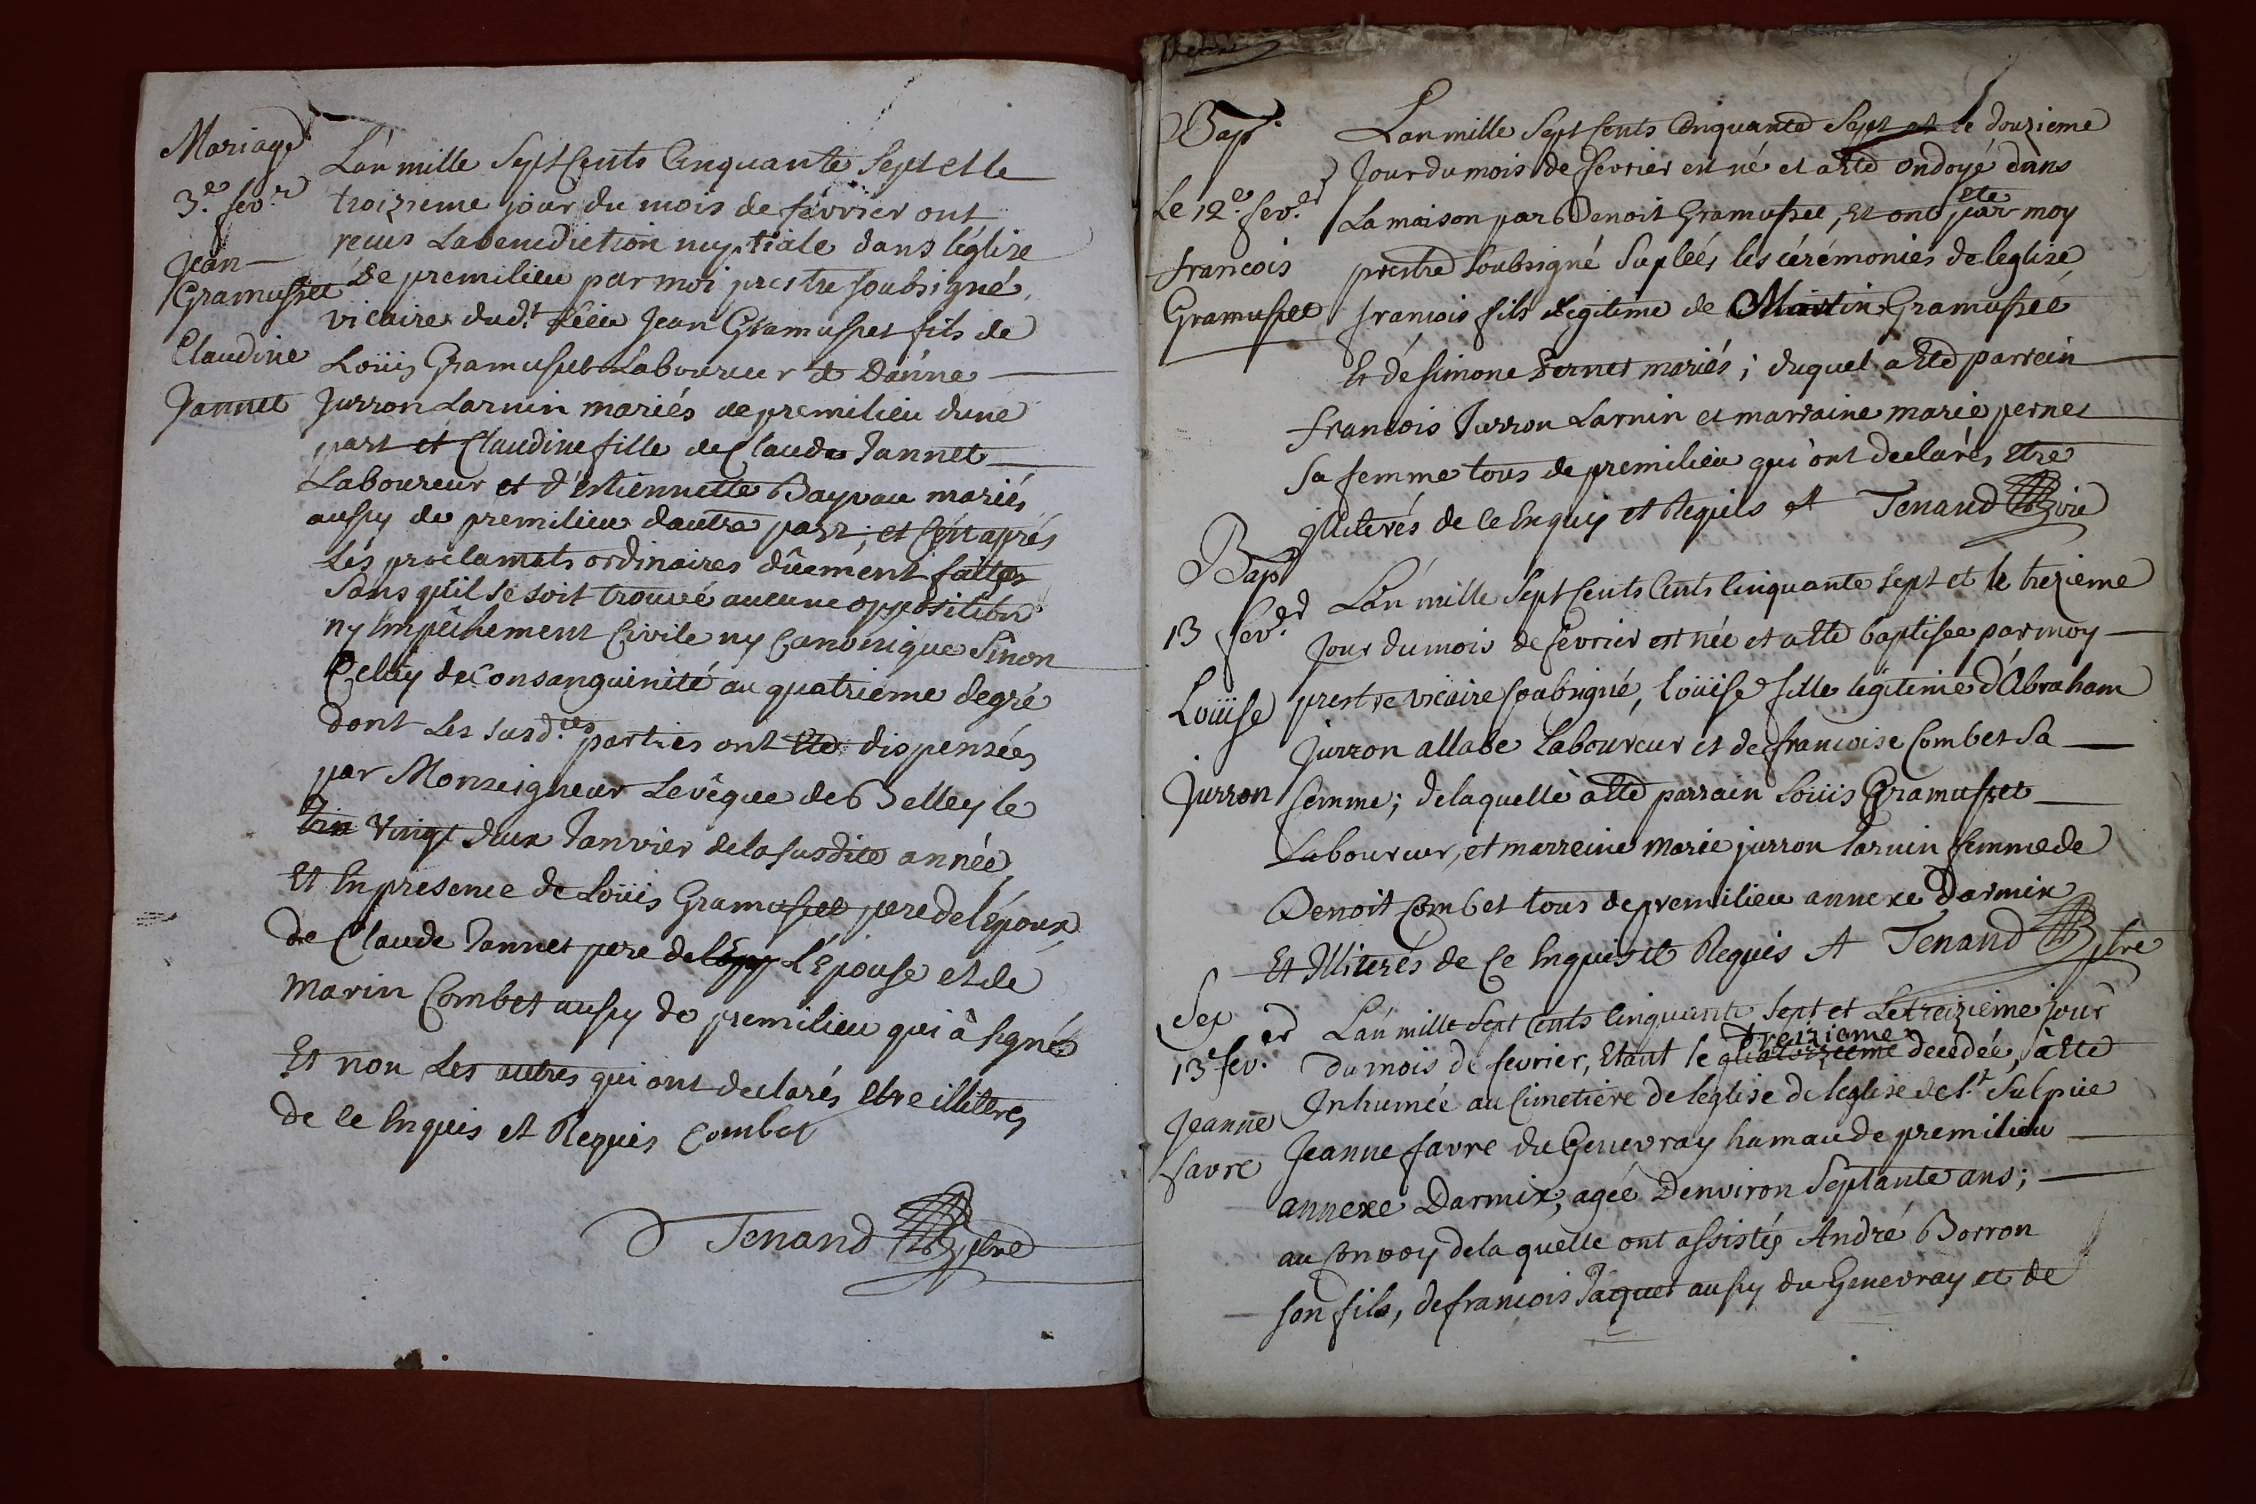 Mariage
3.e fev.er
Jean
Gramusset
Claudine
Jannet
L'an mille Sept Cents Cinquante Sept et le
troizieme jour du mois de février ont
recus La benediction nuptiale dans léglise
de premilieu par moi prestre soubsigné,
vicaire dud.t Lieu Jean Gramusset fils de
Loüis Gramusset Laboureur et Danne
Jurron Larnin mariés de premilieu dune
part et Claudine fille de Claude Jannet
Laboureur et d'éstiennette Bayvau mariés
aussy de premilieu dautre part, et Cért aprés
les proclamats ordinaires dûement faittes
Sans qu'il se soit trouvé aucune opposition
ny Empêchement Civile ny Canonique Sinon
Celuy de Consanguinité au quatriéme degré
dont les susd.ites parties ont Eté dispensées
par Monseigneur Levêque de Belley le
vingt deux Janvier de la susdite année,
Et En présence de Loüis Gramusset pere de lépoux,
de Claude Jannet pere de L'Épouse et de
Marin Combet aussy de premilieu qui à signé
Et non Les autres qui ont declarés etre illitérés
de ce Enquis et Requis Combet
Tenand ptre
Bap.
Le 12.e fev.er
francois
Gramusset
L'an mille Sept Cents Cinquante Sept et le douzieme
Jour du mois de fevrier est né et a Eté ondoyé dans
La maison par Benoit Gramusset, Et ont eté par moy
prestre Soubsigné Supleés les cérémonies de leglise
francois fils Legitime de Martin Gramusset
Et dé simone Pernet mariés; duquel a Eté parrein
francois Jurron Larnin et marraine marie pernet
Sa femme tous de premilieu qui ont declarés etre
illiterés de ce Enquis et Requis Tenand vire
Bap.
13 fev.er
Loüise
Jurron
L'an mille Sept Cents Cents Cinquante Sept et le trezieme
Jour du mois de fevrier est née et a Eté baptisee par moy
prestre vicaire soubsigné, Loüise fille légitime d'Abraham
Jurron allabe Laboureur et de francoise Combet Sa
femme; de laquelle à Eté parrain Loüis Gramusset
Laboureur, et marreine Marie jurron larnin femme de
Benoit Combet tous de premilieu annexe Darmix
Et Illiterés de Ce Enquis et Requis Tenand ptre
Sep
13.e fev.er
Jeanne
favre
L'an mille Sept Cents Cinquante Sept et Le treizieme jour
treizieme
du mois de fevrier, Etant le quatorzieme decedée, à Eté
Inhumée au Cimetiere de leglise de leglise de s.t Sulpice
Jeanne favre du Genevray hamau de premilieu
annexe Darmix, agée Denviron Septante ans;
au Convoy de la quelle ont assistés André Borron
son fils, de francois Paquet aussy du Genevray et de